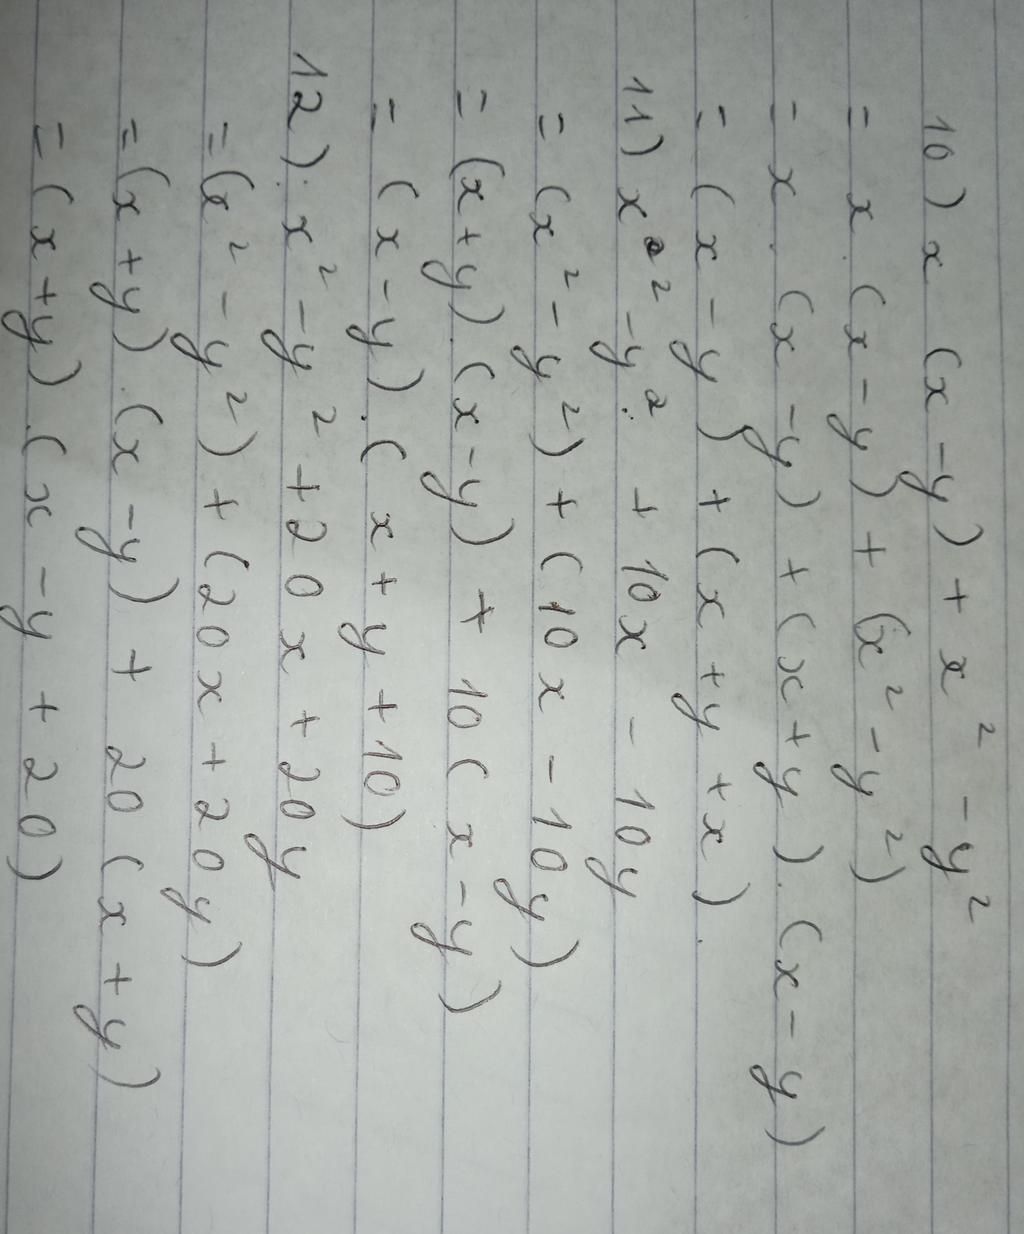 10) x (x - y) + x² - y²
= x . (x - y) + (x² - y²)
= x . (x - y) + (x + y) . (x - y)
= (x - y) + (x + y + x) .
11) x² - y² + 10x - 10y
= (x² - y²) + (10x - 10y)
= (x + y) . (x - y) + 10 (x - y)
= (x - y) . (x + y + 10)
12) . x² - y² + 20x + 20y
= (x² - y²) + (20x + 20y)
= (x + y) . (x - y) + 20 (x + y)
= (x + y) . (x - y + 20)